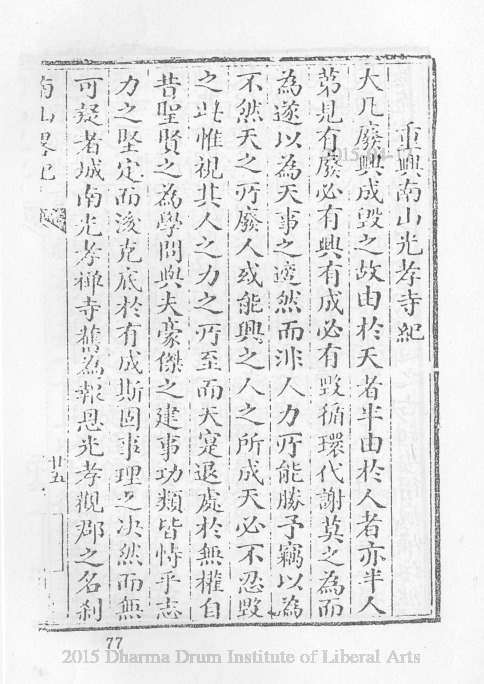 重興南山光孝寺紀
大凡廢興成毀之故由於天者半由於人者亦半人
第見有廢必有興有成必有毀循環代謝莫之為而
為遂以為天事之適然而非人力所能勝予竊以為
不然天之所廢人或能興之人之所成天必不忍毀
之此惟視其人之力之所至而天寔退處於無權自
昔聖賢之為學問與夫豪傑之建事功類皆恃乎志
力之堅定而後克底於有成斯固事理之决然而無
可疑者城南光孝禅寺舊為報恩光孝觀郡之名刹
南山畧紀
廿五
77
2015 Dharma Drum Institute of Liberal Arts